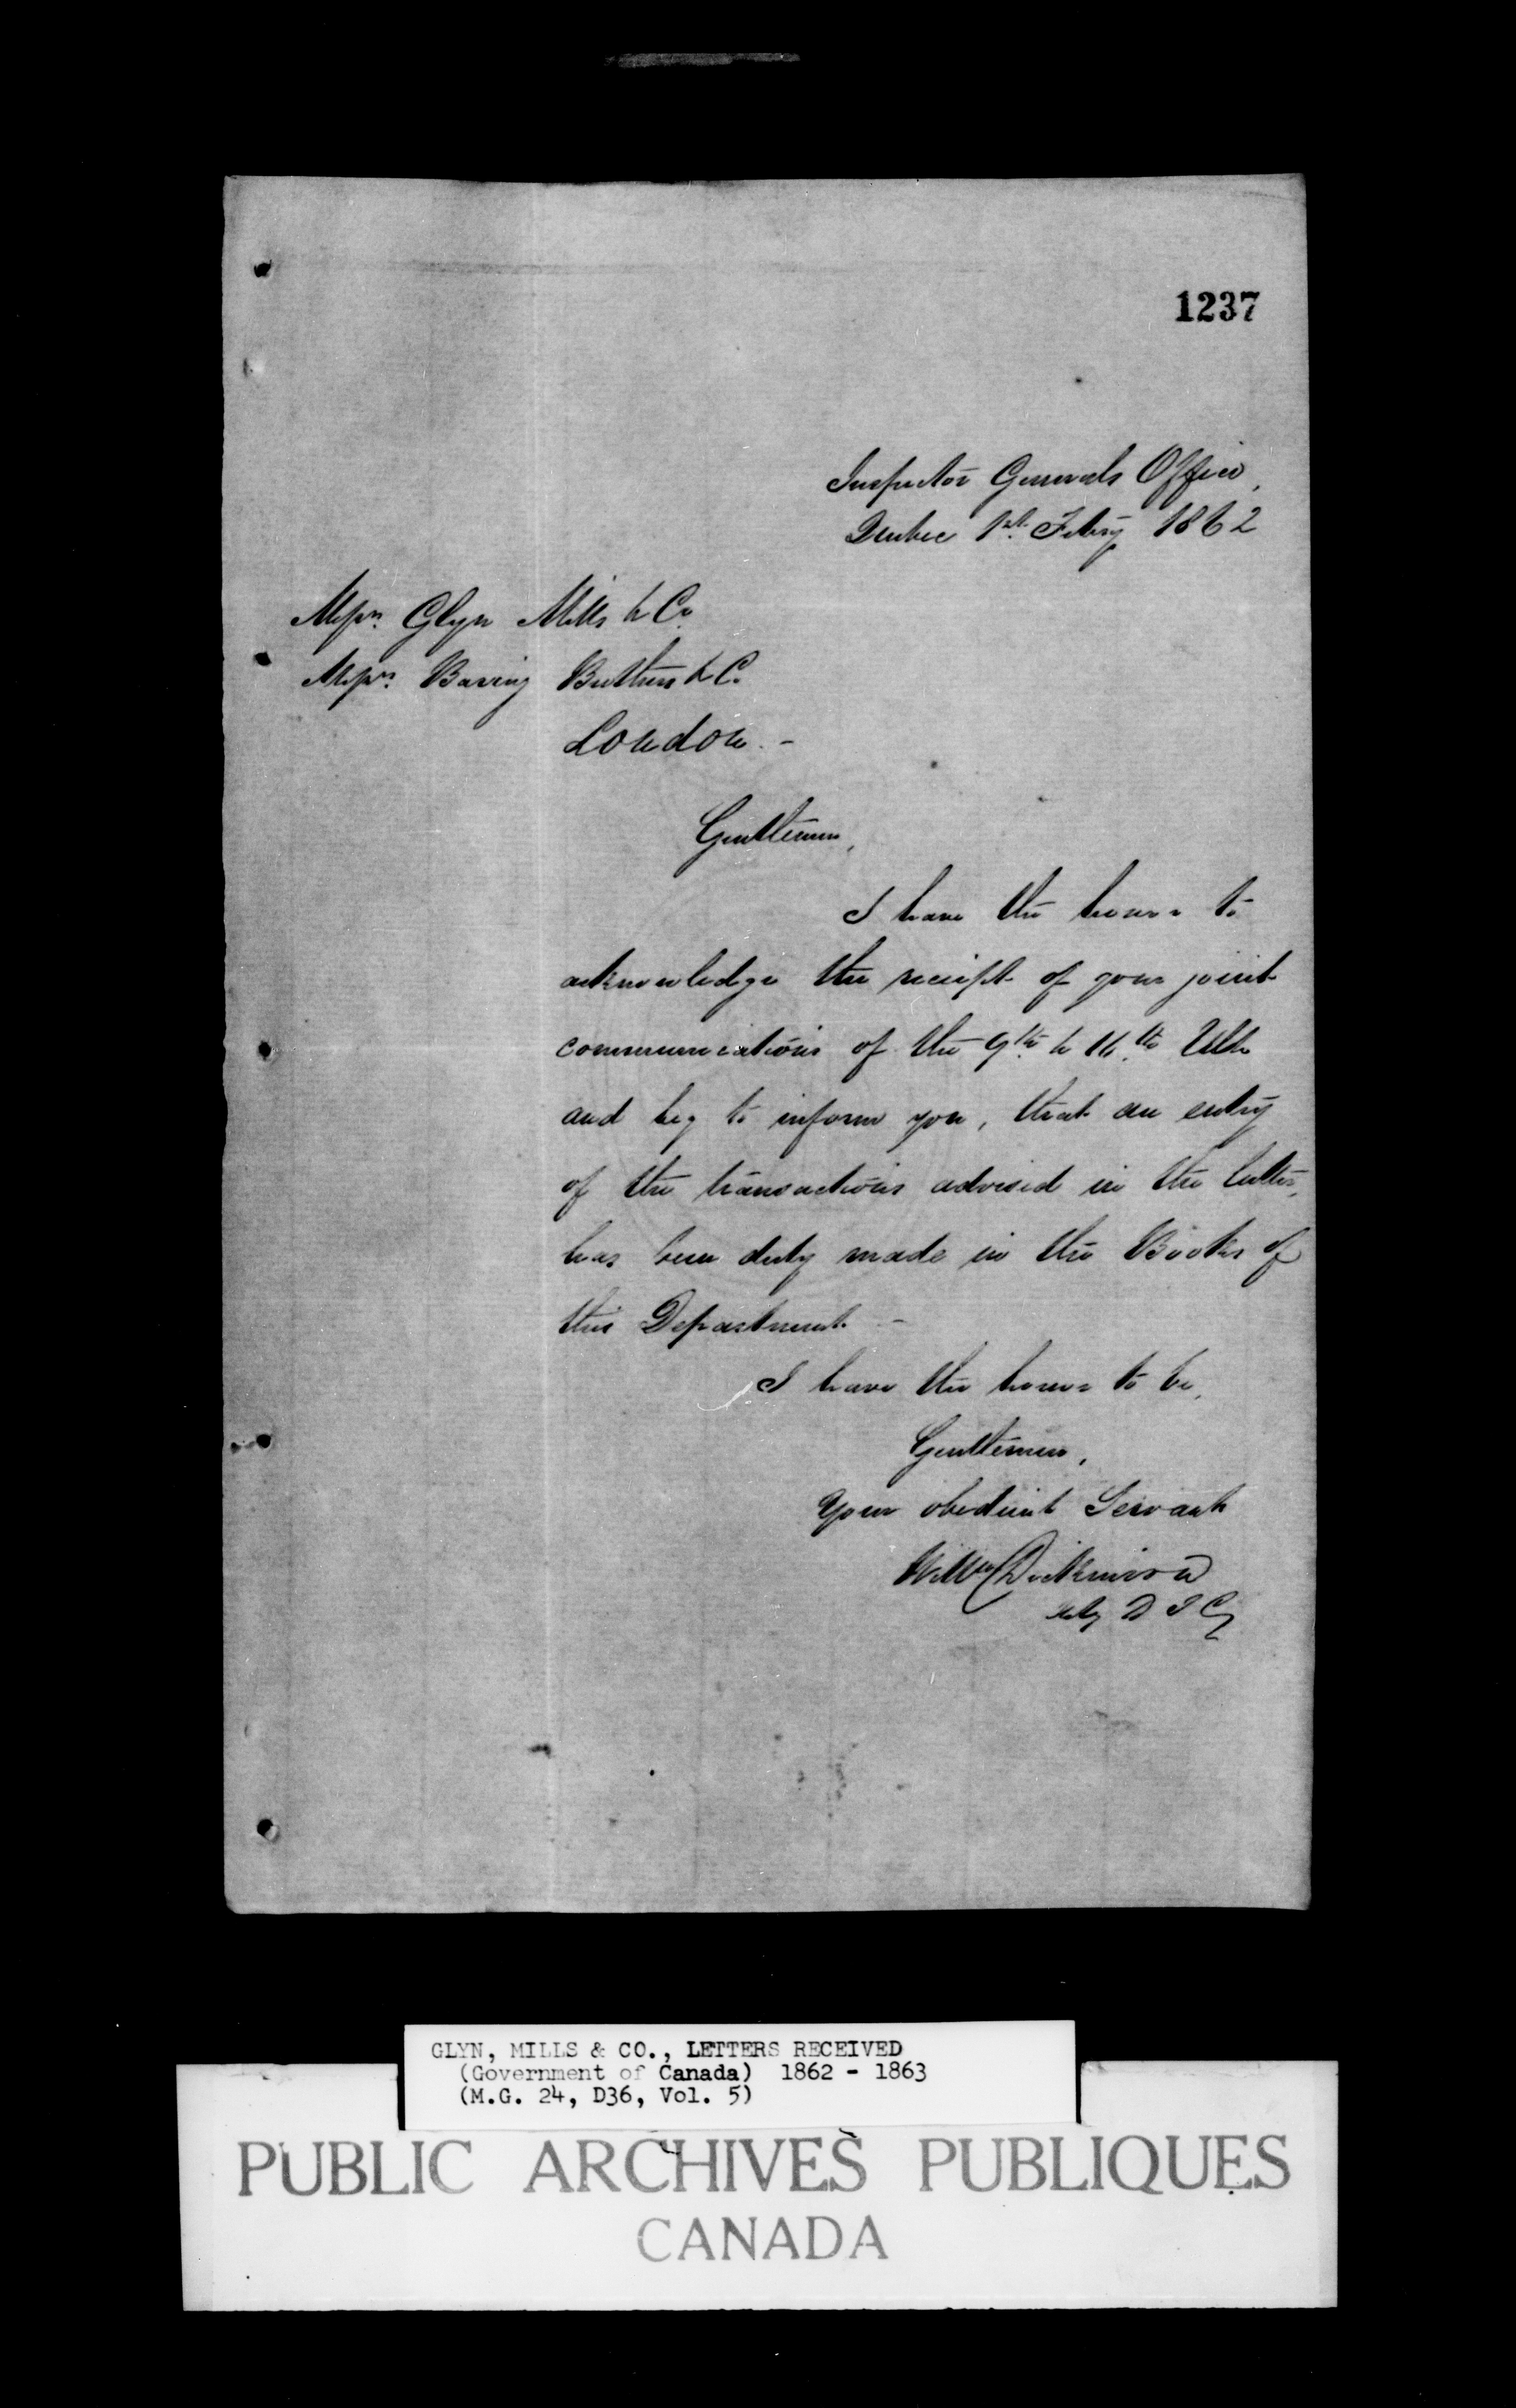 1237
Inspector Generals Office,
Quebec 1st. Feby 1862
Messrs. Glyn Mills & Co.
Messrs. Baring Brothers & Co.
London. -
Gentlemen,
I have the honor to
acknowledge the receipt of your joint
communications of the 9th. & 16.th Ulto
and beg to inform you, that an entry
of the transactions advised in the latter,
has been duly made in the Books of
this Department. -
I have the honor to be,
Gentlemen,
Your obedient Servant
Willm Dickinson
Actg D I G
GLYN, MILLS & CO., LETTERS RECEIVED
(Government of Canada) 1862 - 1863
(M.G. 24, D36, Vol. 5)
PUBLIC ARCHIVES PUBLIQUES
CANADA